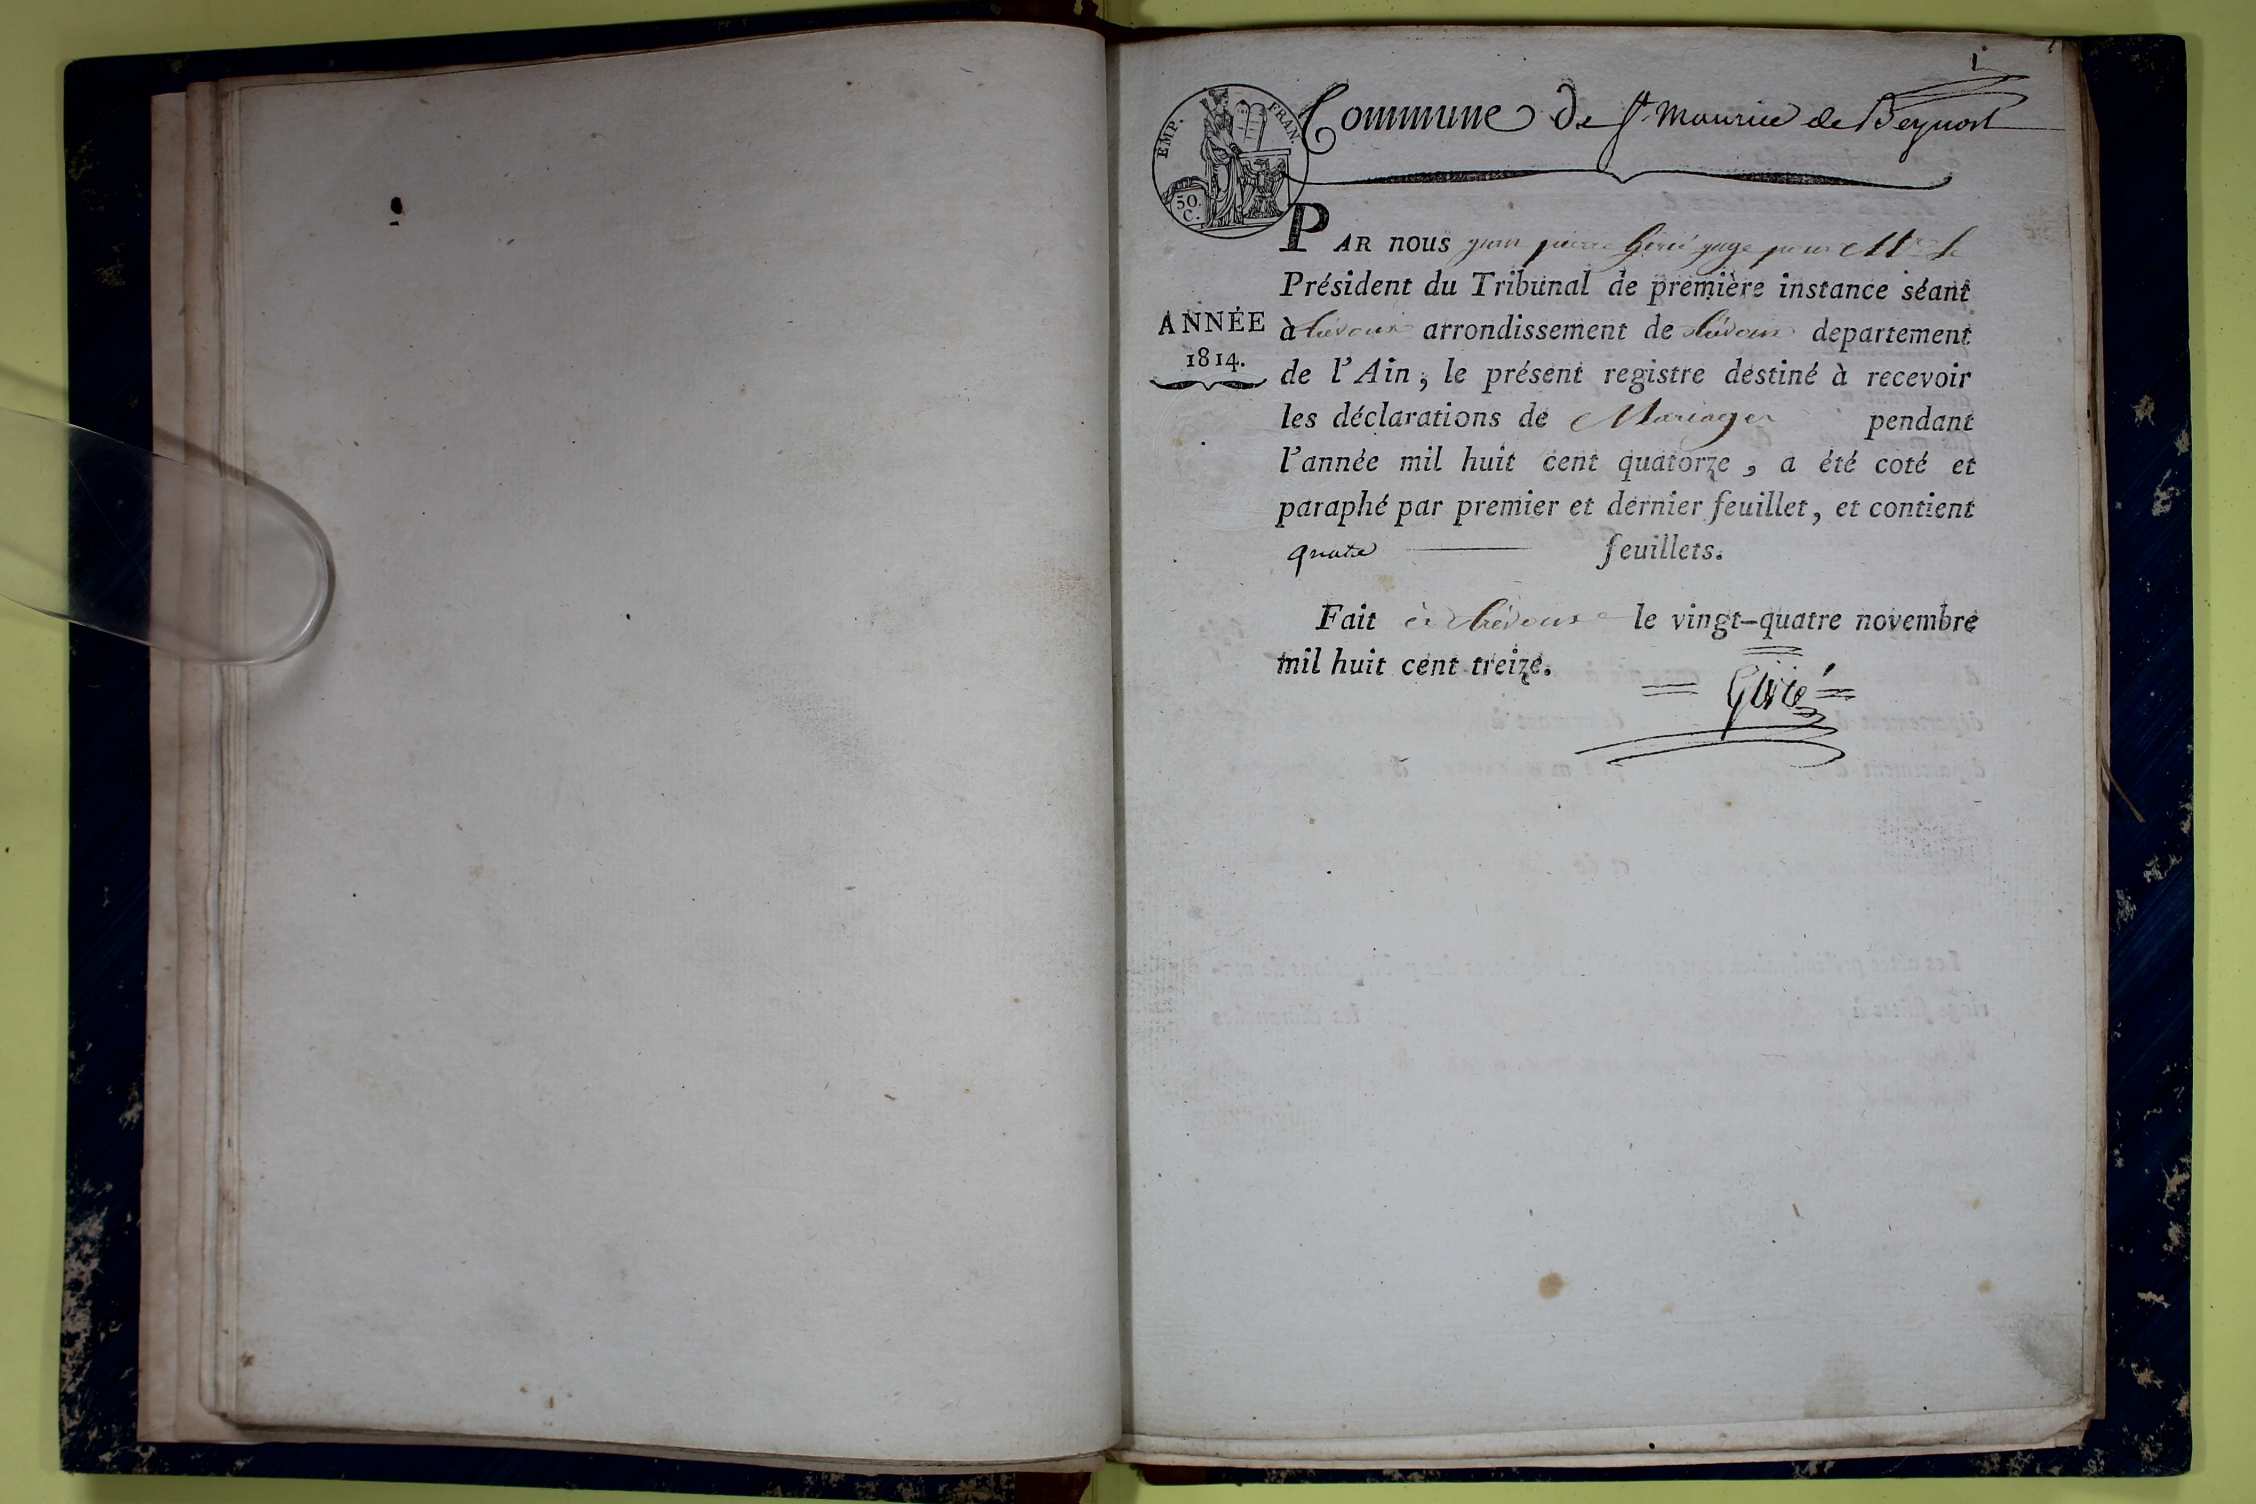 1
EMP. FRAN.
50. C.
Commune de St. Maurice de Beynost
PAR nous jean pierre juge pour Mr. le
Président du Tribunal de première instance séant
ANNÉE 1814.
à trévoux arrondissement de trévoux departement
de l'Ain, le présent registre destiné à recevoir
les déclarations de Mariages pendant
l'année mil huit cent quatorze, a été coté et
paraphé par premier et dernier feuillet, et contient
quatre feuillets.
Fait à trévoux le vingt-quatre novembre
mil huit cent treize.